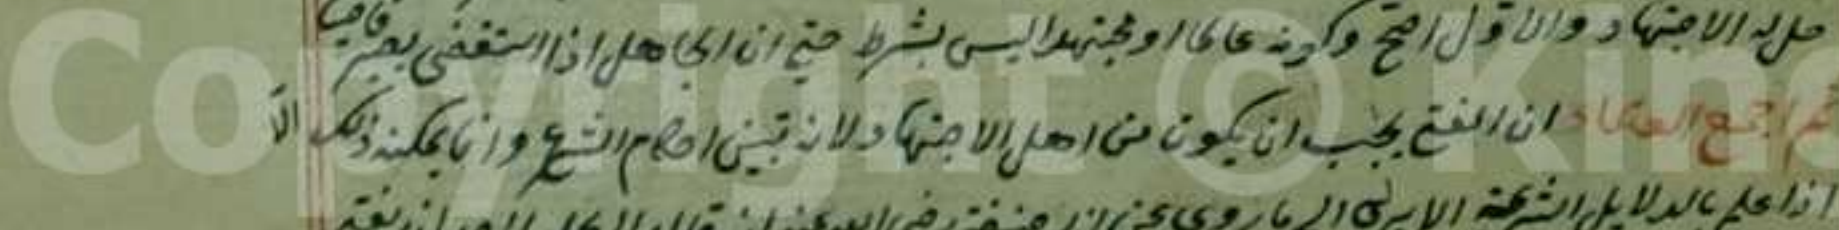 حل له الاجتهاد والاول اصح وكونه عالما او مجتهدا ليس بشرط حتى ان الجاهل اذا استقضى يصير قاضيا
ثم اجمع العلماء ان المفتي يجب ان يكون من اهل الاجتهاد لانه تبين احكام الشرع وانما يمكنه ذلك الا
اذا علم بالدلايل الشرعية الا يرى الى ما روي عن ابي حنيفة رضي الله عنه انه قال لا يحل لاحد ان يفتي
Copyright © King